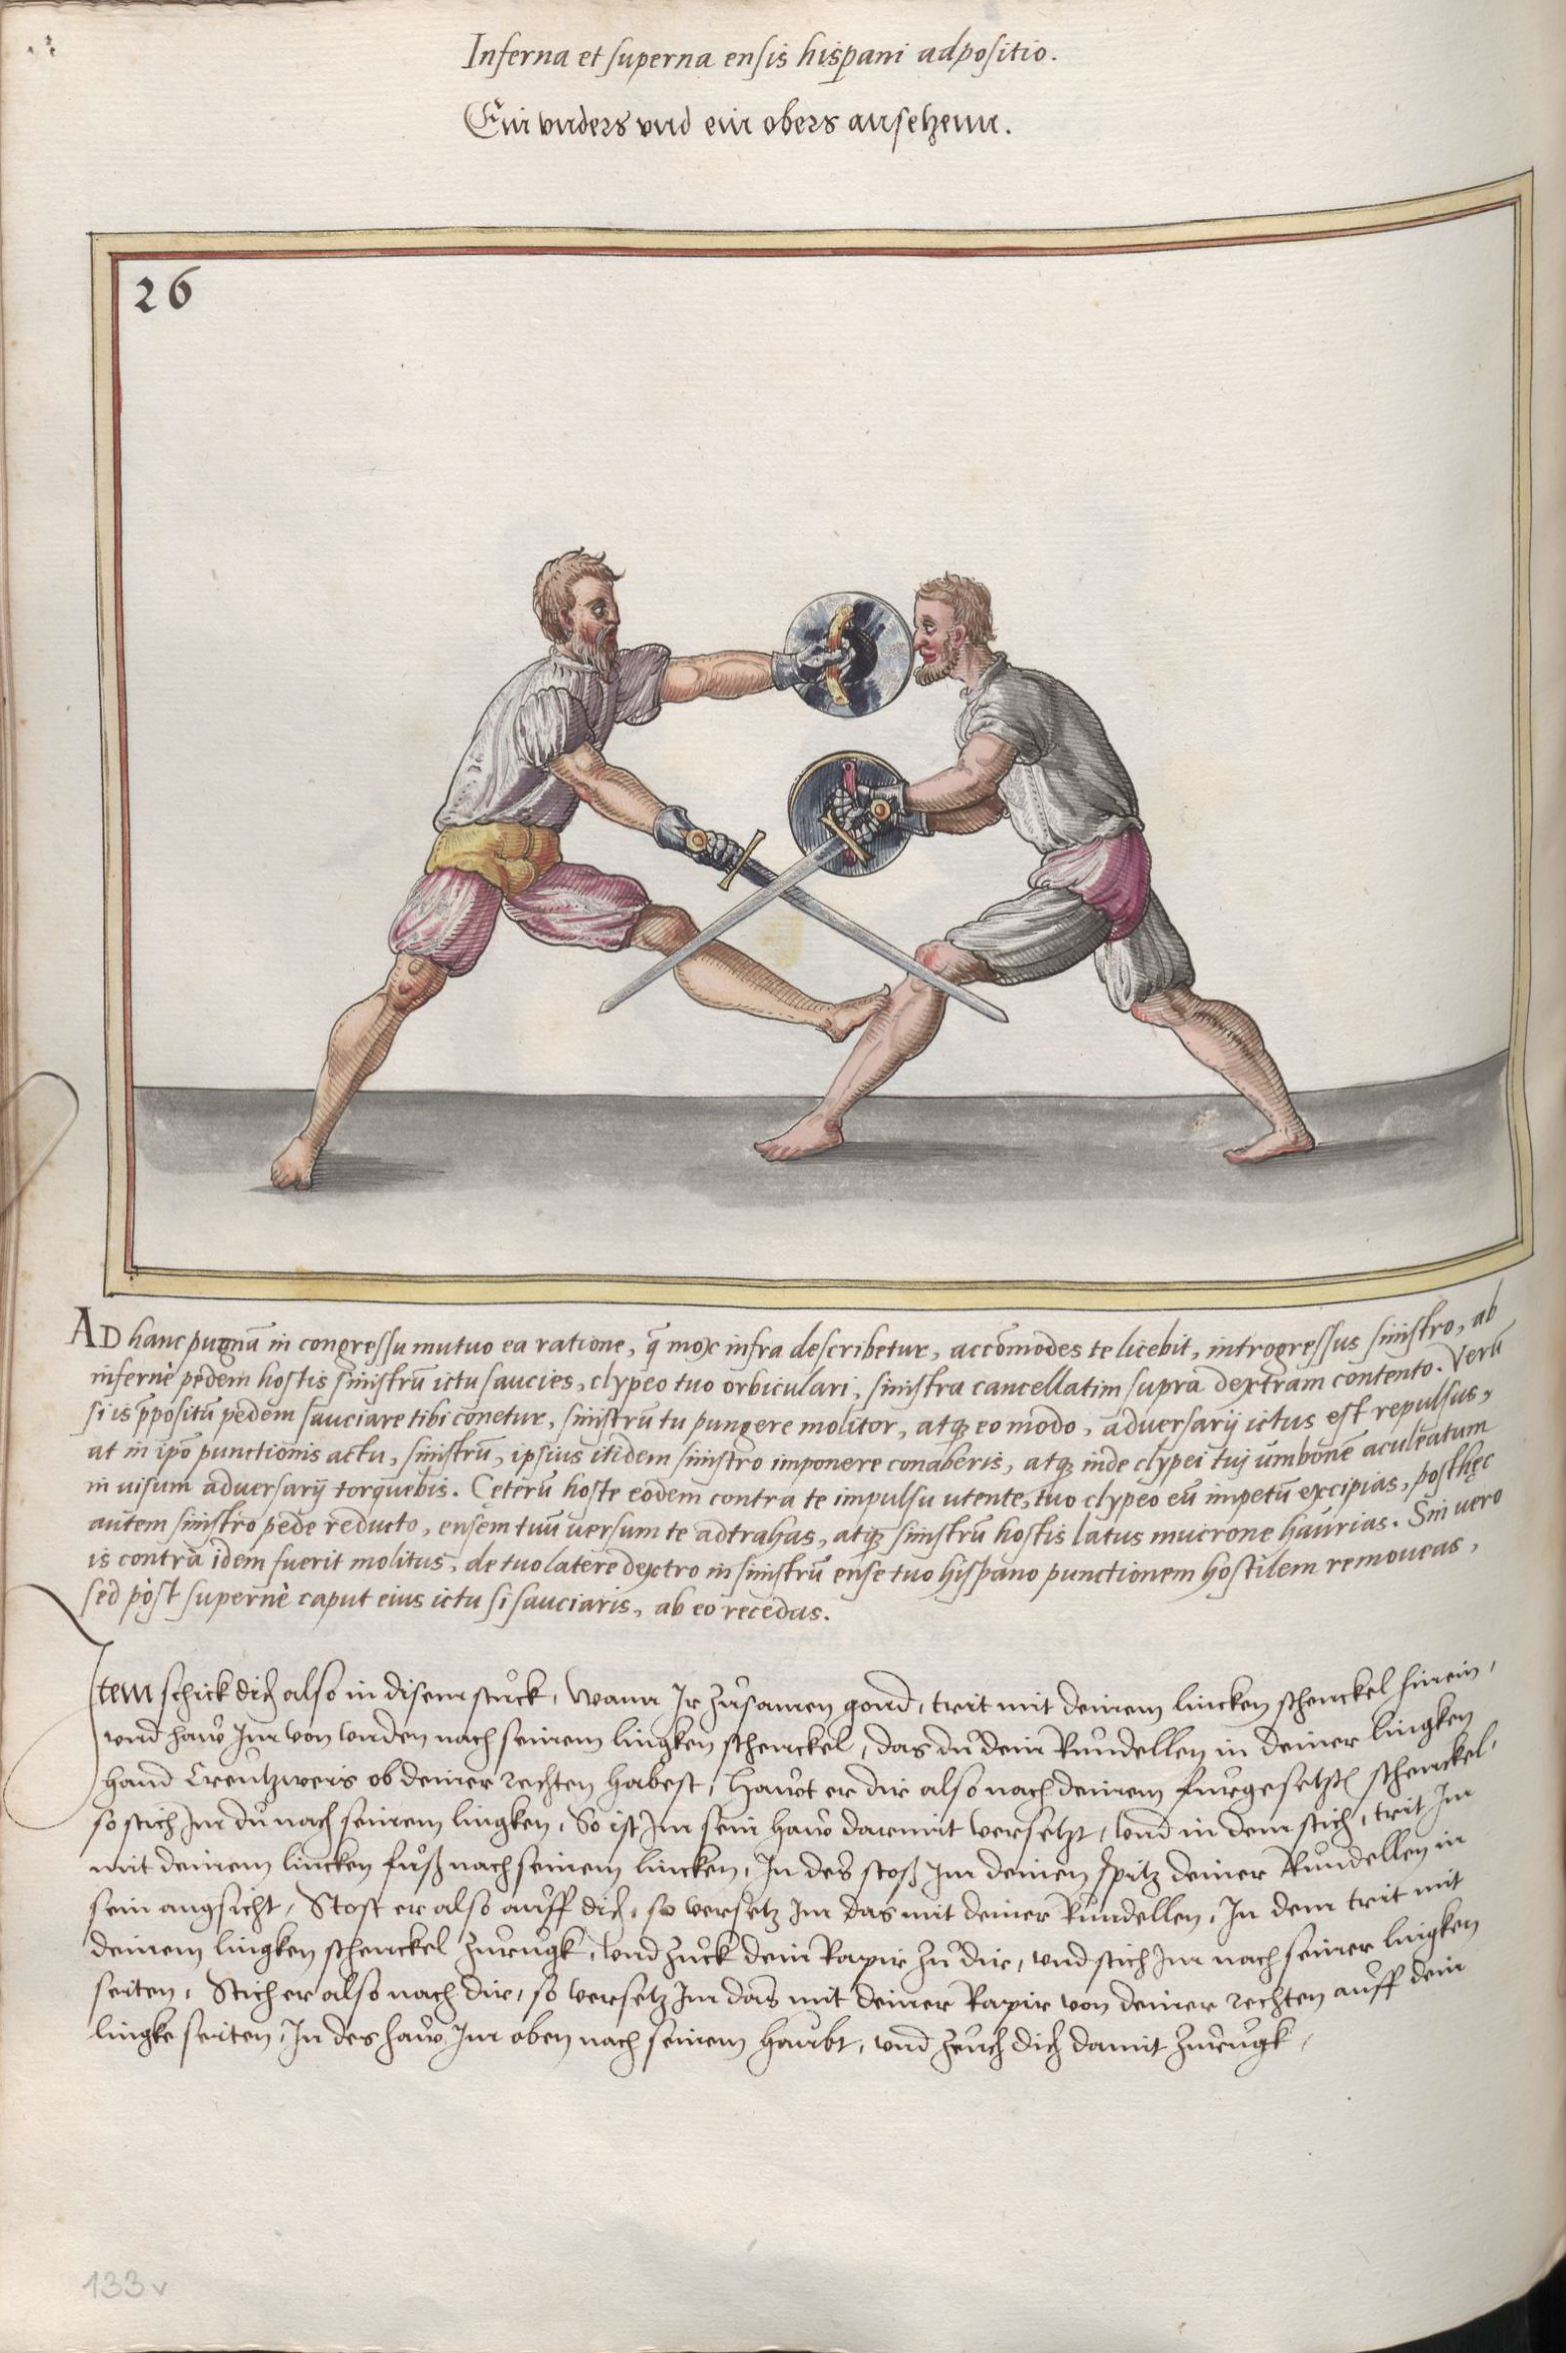 Inferna et superna ensis hispani adpositio.
Ein vnders vnd ein obers ansetzenn.
26
AD hanc pugnā in congressu mutuo ea ratione, q̄ mox infra describetur, accōmodes te licebit, introgressus sinistro, ab
infernè pedem hostis sinistrū ictu saucies, clypeo tuo orbiculari, sinistra cancellatim supra dextram contento. Verū
si is p̄positū pedem sauciare tibi conetur, sinistrū tu pungere molitor, atq; eo modo, adversarij ictus est repulsus,
at in ip̄o punctionis actu, sinistrū, ipsius itidem sinistro imponere conaberis, atq; inde clypei tui umbonē aculeatum
in uisum adversarij torquebis. Ceterū hoste eodem contra te impulsu utente, tuo clypeo eū impetū excipias, posthęc
autem sinistro pede reducto, ensem tuū versum te adtrahas, atq; sinistrū hostis latus mucrone haurias. Sin uero
is contrà idem fuerit molitus, de tuo latere dextro in sinistrū ense tuo hispano punctionem hostilem remoueas,
sed pòst supernè caput eius ictu si sauciaris, ab eo recedas.
Item schick dich also in disem stůck, wann Ir zůsamen gond, trit mit deinem lincken schenckel hinein,
vnd haw Im von vnden nach seinem lingken schenckel, das dů dein Růndellen in deiner lingken
hand Creützweis ob deiner rechten habest, Hawt er dir also nach deinem fürgesetzten schenckel,
so stich Im dů nach seinem lingken, So ist Im sein haw darmit versetzt, vnd in dem stich, trit Im
mit deinem lincken fůß nach seinem lincken, In des stoß Im deinen spitz deiner Růndellen in
sein angsicht, Stost er also auff dich, so versetz Im das mit deiner Růndellen, In dem trit mit
deinem lingken schenckel zůrugk, vnd zůck dein Rapir zů dir, vnd stich Im nach seiner lingken
seiten, Stich er also nach dir, so versetz Im das mit deiner Rapir von deiner rechten auff dein
lingke seiten, In des haw Im oben nach seinem haubt, vnd zeüch dich damit zůrugk,
133v